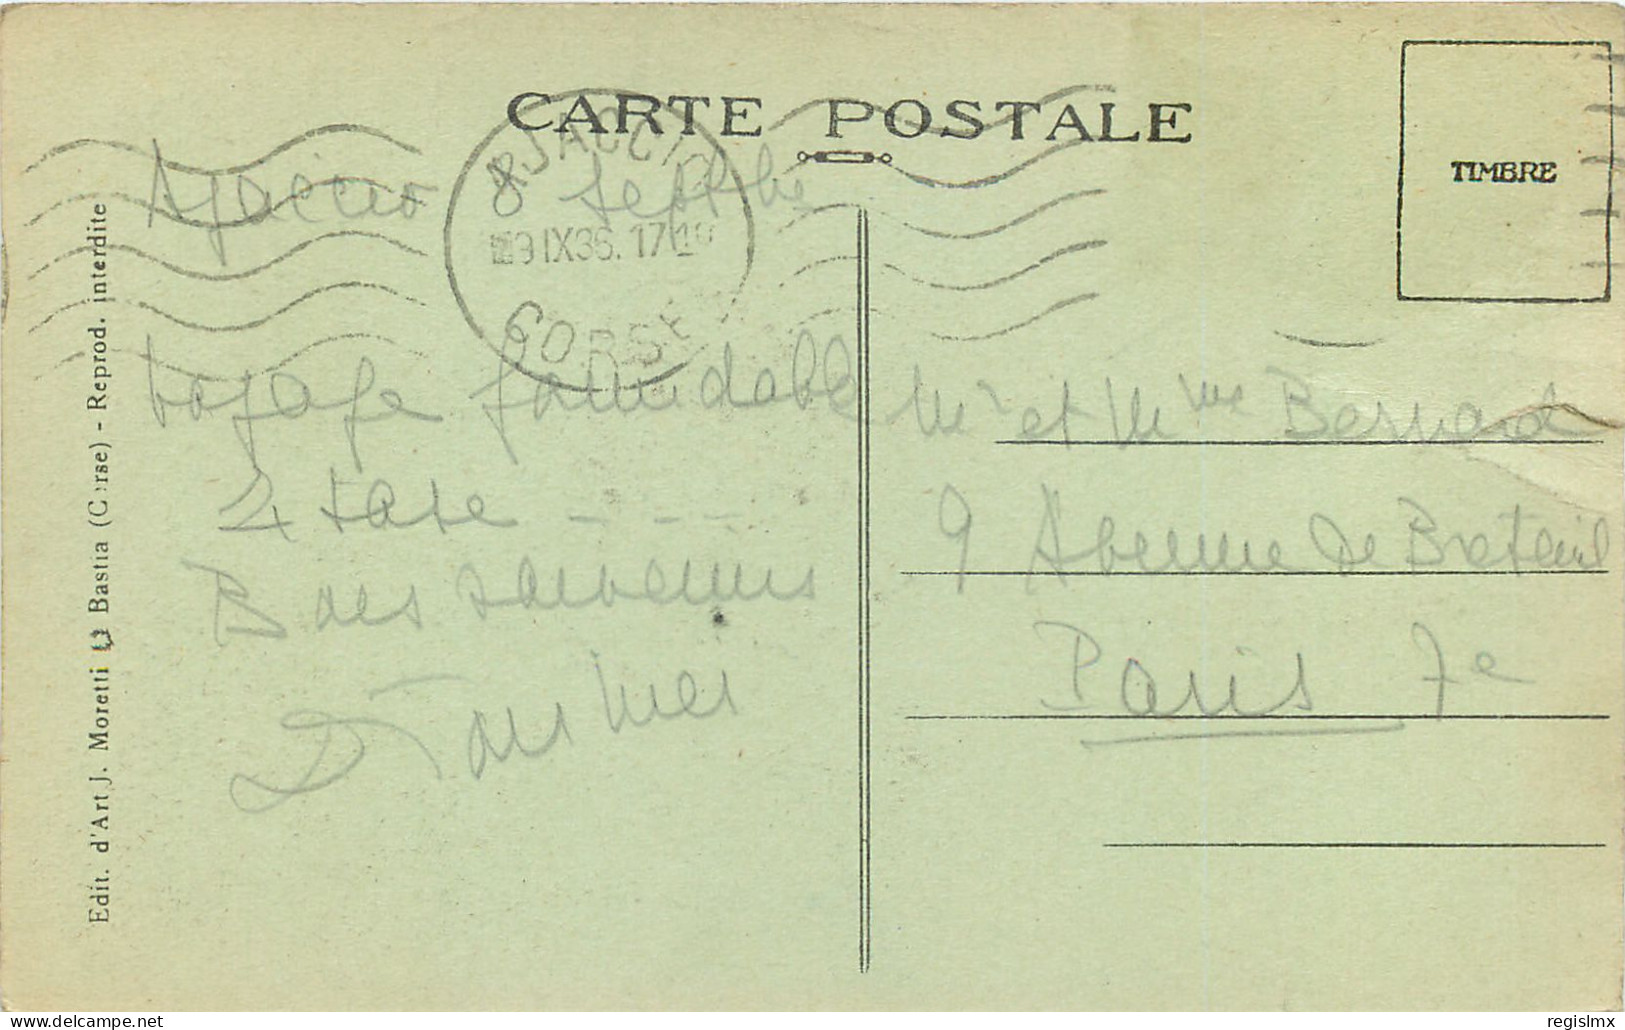 CARTE POSTALE
TIMBRE
AJACCIO
9 IX 36. 17
CORSE
Ajaccio 8 Septbre
Voyage formidable
Bons souvenirs
Mr et Mme Bernard
9 Avenue de Breteuil
Paris 7e
Edit. d'Art J. Moretti Bastia (Corse) - Reprod. interdite
delcampe.net
regislmx